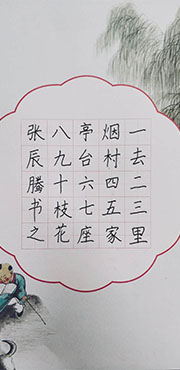 一去二三里
烟村四五家
亭台六七座
八九十枝花
张辰腾书之